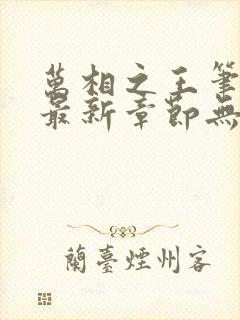 萬相之王筆
最新章節無
蘭臺煙州客